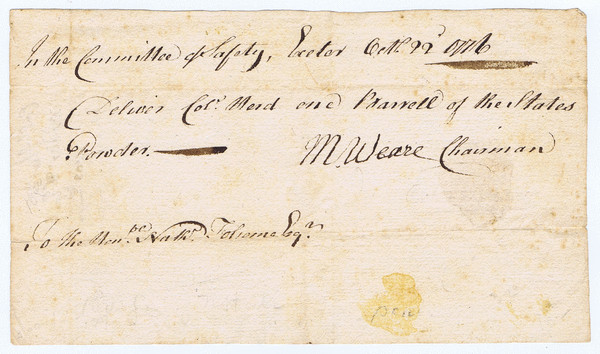 In the Committee of Safety, Exeter Octr. 22d 1776
Deliver Colo. Herd one Barrell of the States
Powder.
M. Weare Chairman
To the Honble. Nathl. Folsome Esqr.